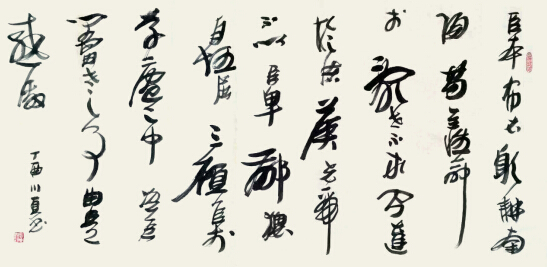 臣本布衣躬耕南
陽苟全性命
於亂世不求聞達
於諸侯先帝
不以臣卑鄙猥
自枉屈三顧臣於
草廬之中諮臣
以當世之事由是
感激
丁酉川